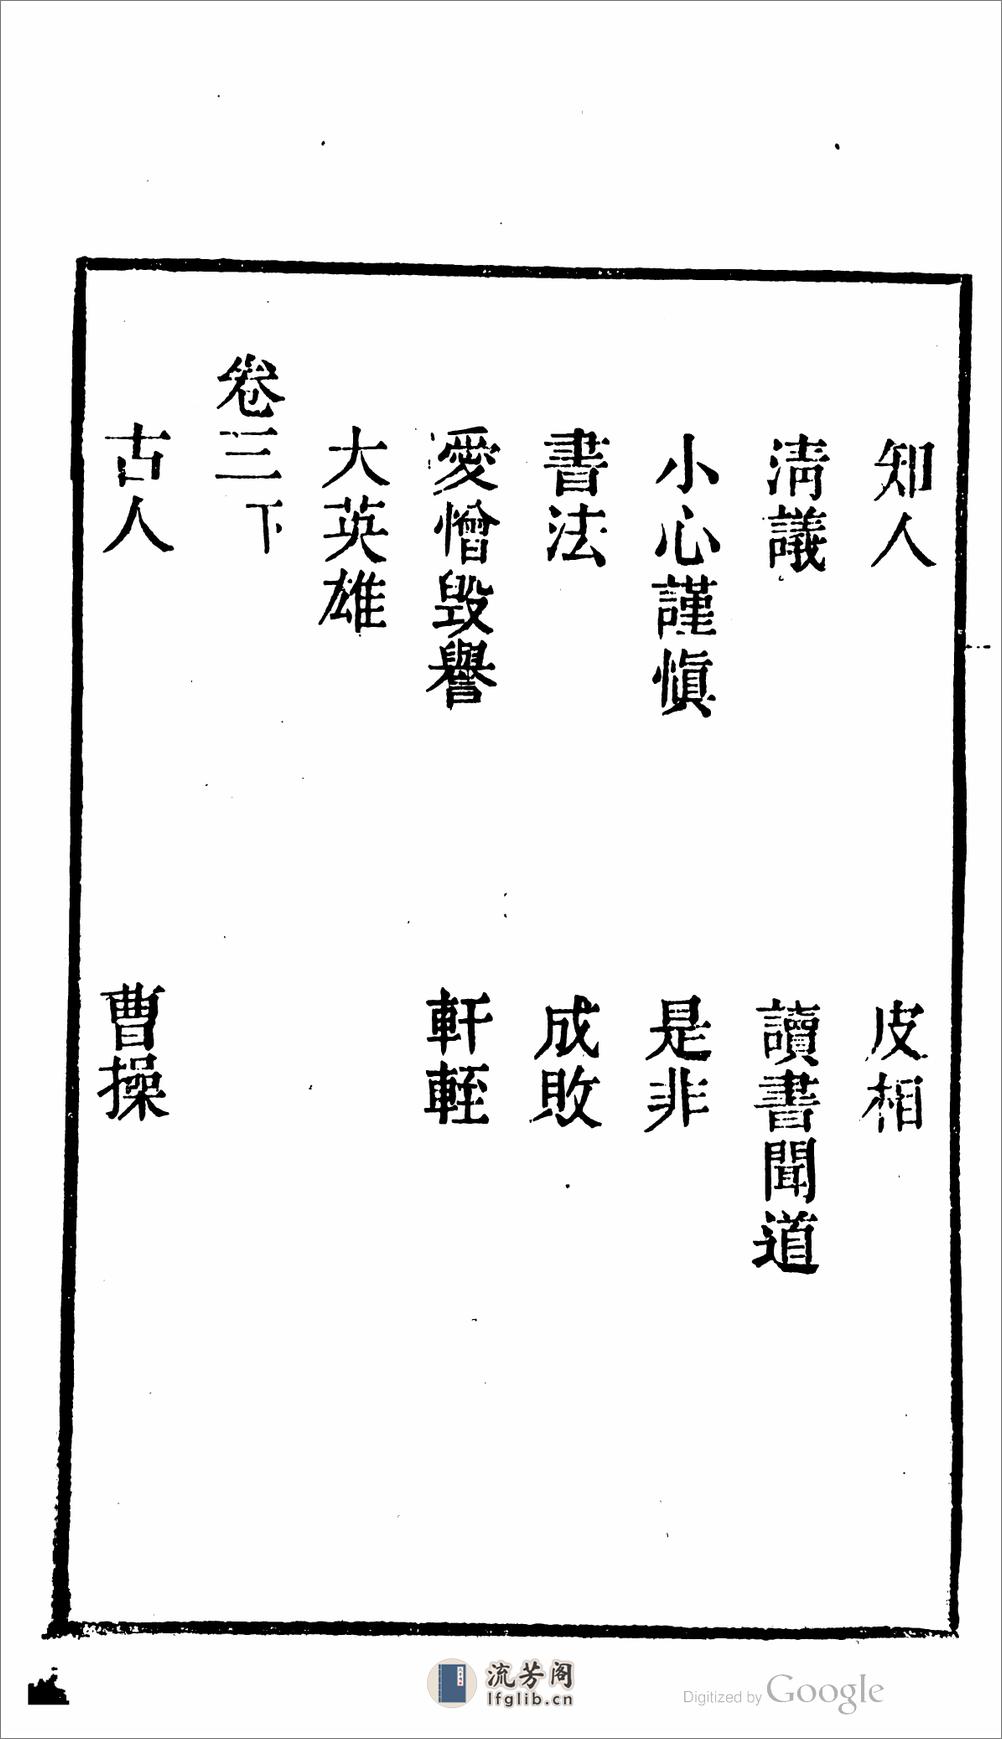 知人 皮相
淸議 讀書聞道
小心謹愼 是非
書法 成敗
愛憎毁譽 軒輊
大英雄
卷三下
古人 曹操
流芳阁
lfglib.cn
Digitized by Google